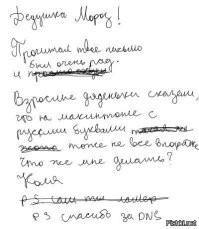 Дедушка Мороз!
Прочитал твое письмо
был очень рад.
и
Взрослые дяденьки сказали,
что на макинтоше с
русскими буквами
тоже не все впорядке
Что же мне делать?
Коля
PS сам ты ламер
PS спасибо за DNS
Fishki.net